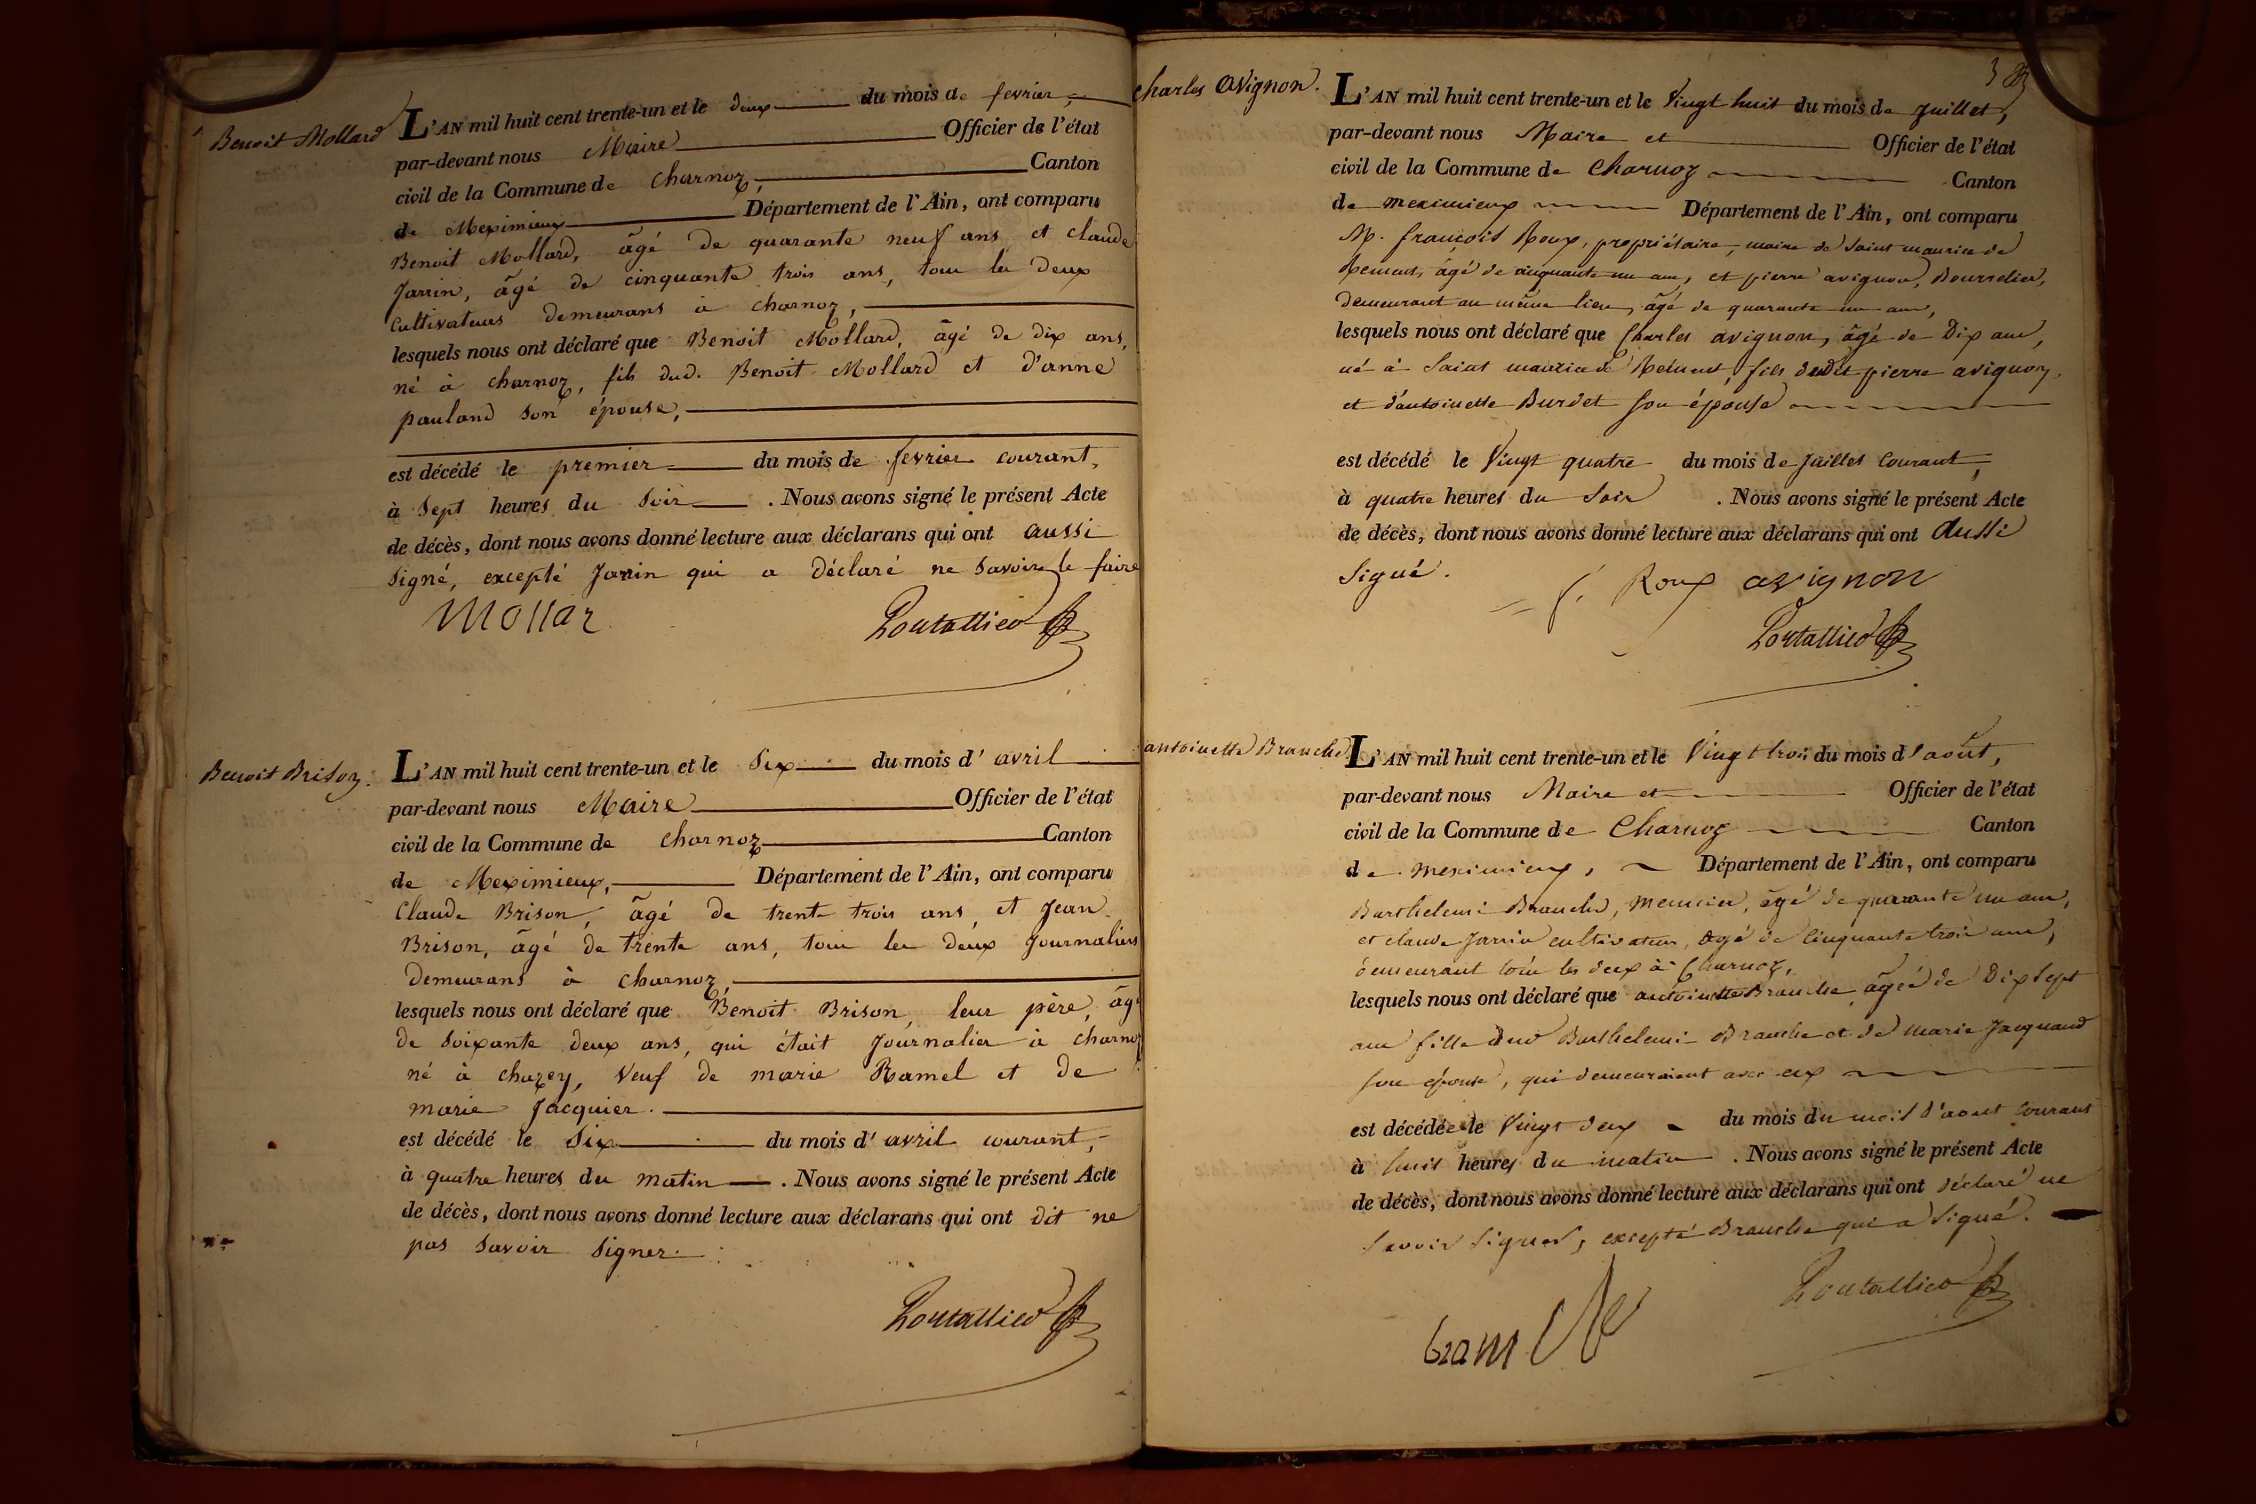 Benoit Mollard
L'AN mil huit cent trente-un et le deux du mois de fevrier,
par-devant nous Maire Officier de l'état
civil de la Commune de Charnoz, Canton
de Meximieux Département de l'Ain, ont comparu
Benoit Mollard, âgé de quarante neuf ans, et Claude
Jarrin, âgé de cinquante trois ans, tous les deux
Cultivateurs demeurans à Charnoz,
lesquels nous ont déclaré que Benoit Mollard, âgé de dix ans,
né à Charnoz, fils dud. Benoit Mollard et d'anne
pauland son épouse,
est décédé le premier du mois de fevrier courant,
à Sept heures du Soir. Nous avons signé le présent Acte
de décès, dont nous avons donné lecture aux déclarans qui ont aussi
Signé, excepté Jarrin qui a déclaré ne savoir le faire
Mollar Portallier
Benoit Brison.
L'AN mil huit cent trente-un et le Six du mois d'avril
par-devant nous Maire Officier de l'état
civil de la Commune de Charnoz Canton
de Meximieux, Département de l'Ain, ont comparu
Claude Brison, âgé de trente trois ans, et Jean
Brison, âgé de trente ans, tous les deux Journaliers
Demeurans à Charnoz,
lesquels nous ont déclaré que Benoit Brison, leur père, âgé
de Soixante deux ans, qui était Journalier à Charnoz
né à chazey, Veuf de marie Ramel et de
marie Jacquier.
est décédé le Six du mois d'avril courant,
à quatre heures du matin. Nous avons signé le présent Acte
de décès, dont nous avons donné lecture aux déclarans qui ont dit ne
pas Savoir Signer.
Portallier
3
Charles Avignon.
L'AN mil huit cent trente-un et le Vingt huit du mois de Juillet,
par-devant nous Maire et Officier de l'état
civil de la Commune de Charnoz Canton
de meximieux Département de l'Ain, ont comparu
M. françois Roux, propriétaire, maire de Saint maurice de
Remens, âgé de cinquante un ans, et pierre avignon, Bourrelier,
demeurant au même lieu, âgé de quarante un ans,
lesquels nous ont déclaré que Charles avignon, âgé de Dix ans,
né à Saint maurice de Remens, fils dudit pierre avignon,
et d'antoinette Burdet son épouse
est décédé le Vingt quatre du mois de Juillet Courant,
à quatre heures du Soir. Nous avons signé le présent Acte
de décès, dont nous avons donné lecture aux déclarans qui ont Aussi
Signé.
f. Roux avignon
Portallier
antoinette Branche.
L'AN mil huit cent trente-un et le Vingt trois du mois d'août,
par-devant nous Maire et Officier de l'état
civil de la Commune de Charnoz Canton
de meximieux, Département de l'Ain, ont comparu
Barthelemi Branche, meunier, âgé de quarante un ans,
et claude Jarrin cultivateur, âgé de Cinquante trois ans,
demeurant tous les deux à Charnoz,
lesquels nous ont déclaré que antoinette Branche âgée de Dix Sept
ans fille dud Barthelemi Branche et de marie Jacquand
son épouse, qui demeuraient avec eux
est décédée le Vingt deux du mois du mois d'aout Courant
à huit heures du matin. Nous avons signé le présent Acte
de décès, dont nous avons donné lecture aux déclarans qui ont déclaré ne
Savoir Signer, excepté Branche qui a Signé.
Portallier